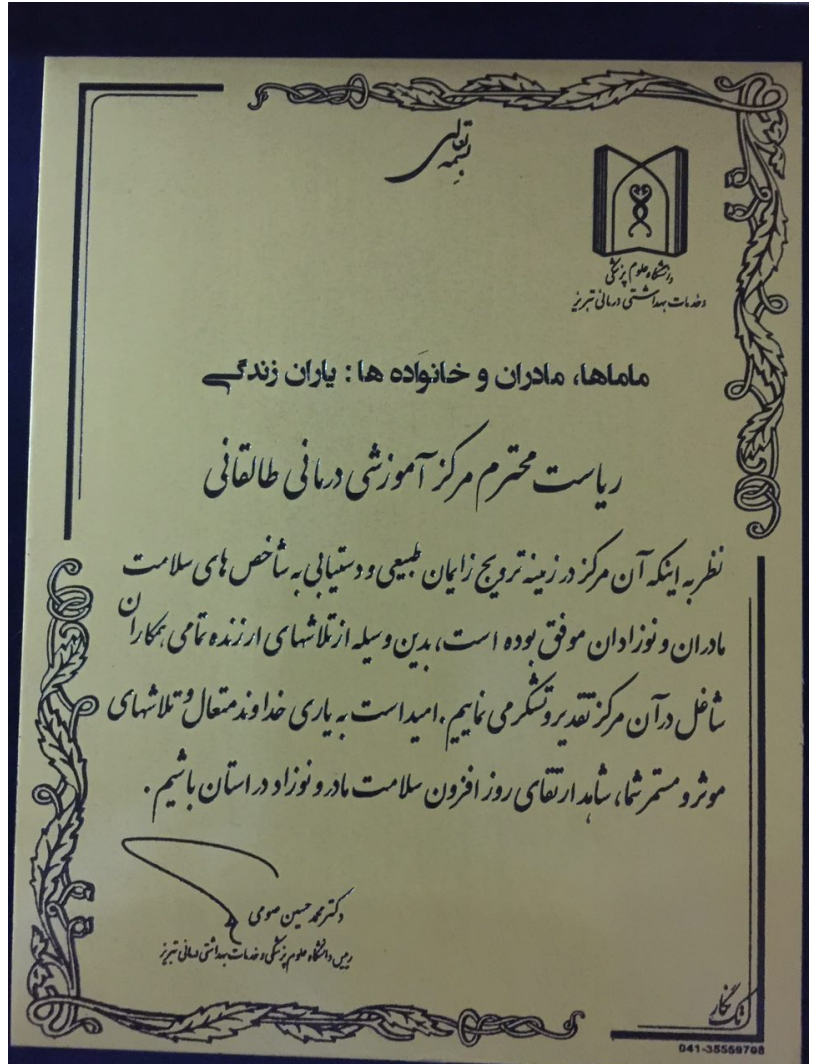 بسمه تعالی
دانشگاه علوم پزشکی
و خدمات بهداشتی درمانی تبریز
ماماها، مادران و خانواده ها: یاران زندگی
ریاست محترم مرکز آموزشی درمانی طالقانی
نظر به اینکه آن مرکز در زمینه ترویج زایمان طبیعی و دستیابی به شاخص های سلامت
مادران و نوزادان موفق بوده است، بدین وسیله از تلاشهای ارزنده تمامی همکاران
شاغل در آن مرکز تقدیر و تشکر می نماییم. امید است به یاری خداوند متعال و تلاشهای
موثر و مستمر شما، شاهد ارتقای روز افزون سلامت مادر و نوزاد در استان باشیم.
دکتر محمد حسین صومی
رییس دانشگاه علوم پزشکی و خدمات بهداشتی درمانی تبریز
تک نگار
041-35559708